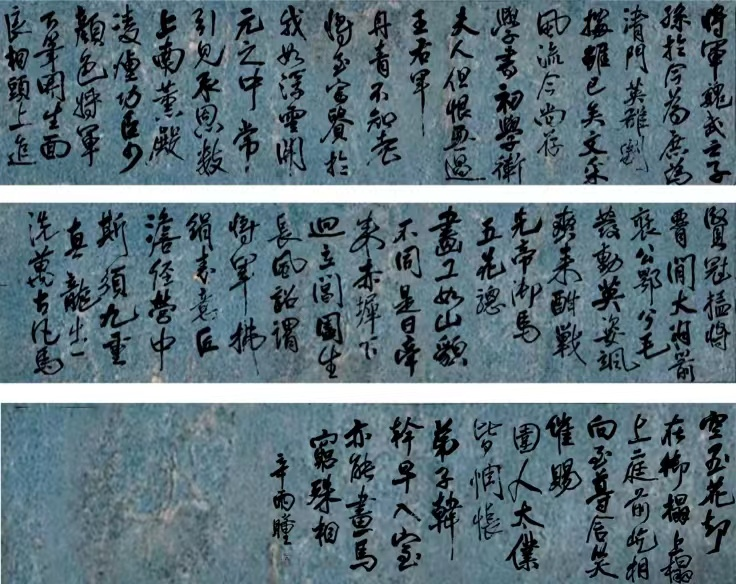 將軍魏武之子
孫於今為庶為
清門英雄割
據雖已矣文采
風流今尚存
學書初學衛
夫人但恨無過
王右軍
丹青不知老
將至富貴於
我如浮雲開
元之中常
引見承恩數
上南薰殿
凌煙功臣少
顏色將軍
下筆開生面
良相頭上進
賢冠猛將
腰間大羽箭
褒公鄂公毛
發動英姿颯
爽來酣戰
先帝御馬
五花驄
畫工如山貌
不同是日牽
來赤墀下
迥立閶闔生
長風詔謂
將軍拂
絹素意匠
澹經營中
斯須九重
真龍出一
洗萬古凡馬
空玉花卻
在御榻上榻
上庭前屹相
向至尊含笑
催賜
圉人太僕
皆惆悵
弟子韓
幹早入室
亦能畫馬
窮殊相
辛雨瞳